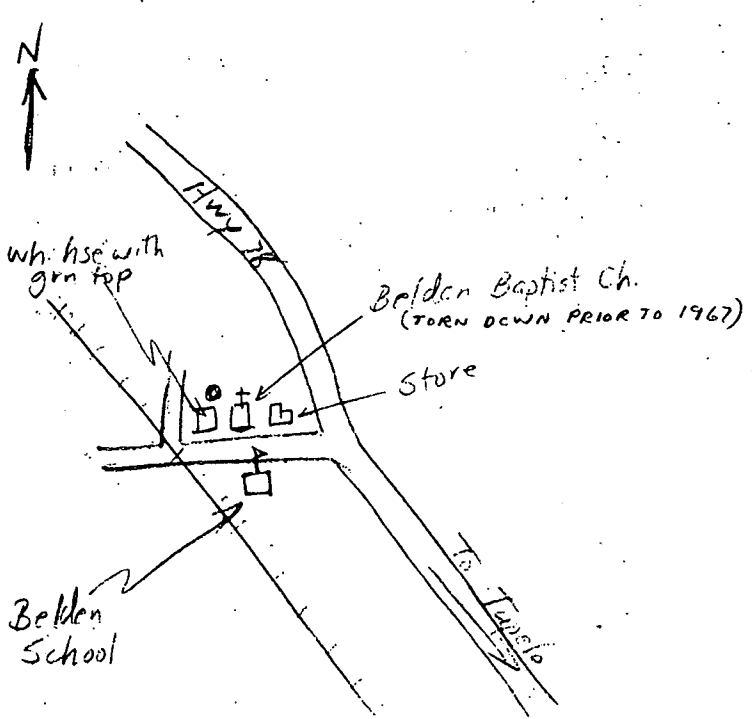 N
Hwy 78
wh. hse with
grn top
Belden Baptist Ch.
(TORN DOWN PRIOR TO 1967)
Store
Belden
School
To Tupelo